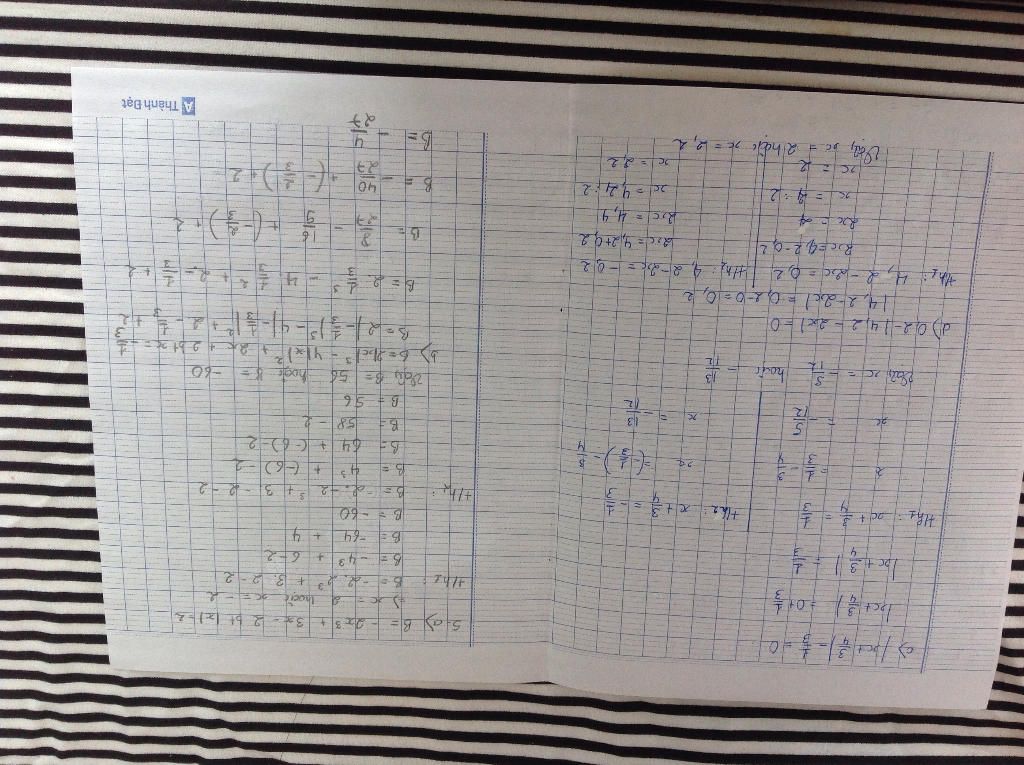 c) |x + 3/4| - 1/3 = 0
|x + 3/4| = 0 + 1/3
|x + 3/4| = 1/3
TH1: x + 3/4 = 1/3 TH2: x + 3/4 = - 1/3
x = 1/3 - 3/4 x = (- 1/3) - 3/4
x = - 5/12 x = - 13/12
Vậy x = - 5/12 hoặc - 13/12
d) 0,2 - |4,2 - 2x| = 0
|4,2 - 2x| = 0,2 - 0 = 0,2
TH1: 4,2 - 2x = 0,2 TH2: 4,2 - 2x = - 0,2
2x = 4,2 - 0,2 2x = 4,2 + 0,2
2x = 4 2x = 4,4
x = 4 : 2 x = 4,4 : 2
x = 2 x = 2,2
Vậy x = 2 hoặc x = 2,2
5 a) B = - 2x³ + 3x - 2 bt |x| = 2
=> x = 2 hoặc x = - 2
TH1: B = - 2. 2³ + 3. 2 - 2
B = - 4³ + 6 - 2
B = - 64 + 4
B = - 60
TH2: B = - 2. - 2³ + 3. - 2 - 2
B = 4³ + (-6) - 2
B = 64 + (-6) - 2
B = 58 - 2
B = 56
Vậy B = 56 hoặc B = - 60
b) B = 2|x|³ - 4|x|² + 2x + 2 bt x = - 1/3
B = 2|- 1/3|³ - 4|- 1/3|² + 2. - 1/3 + 2
B = 2. 1/3³ - 4. 1/3² + 2. - 1/3 + 2
B = 8/27 - 16/9 + (- 2/3) + 2
B = - 40/27 + (- 2/3) + 2
B = - 4/27
A Thành Đạt